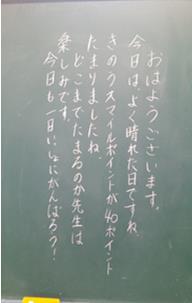 おはようございます。
今日は、よく晴れた日ですね。
きのうスマイルポイントが40ポイント
たまりましたね。
どこまでたまるのか先生は
楽しみです。
今日も一日いっしょにがんばろう！